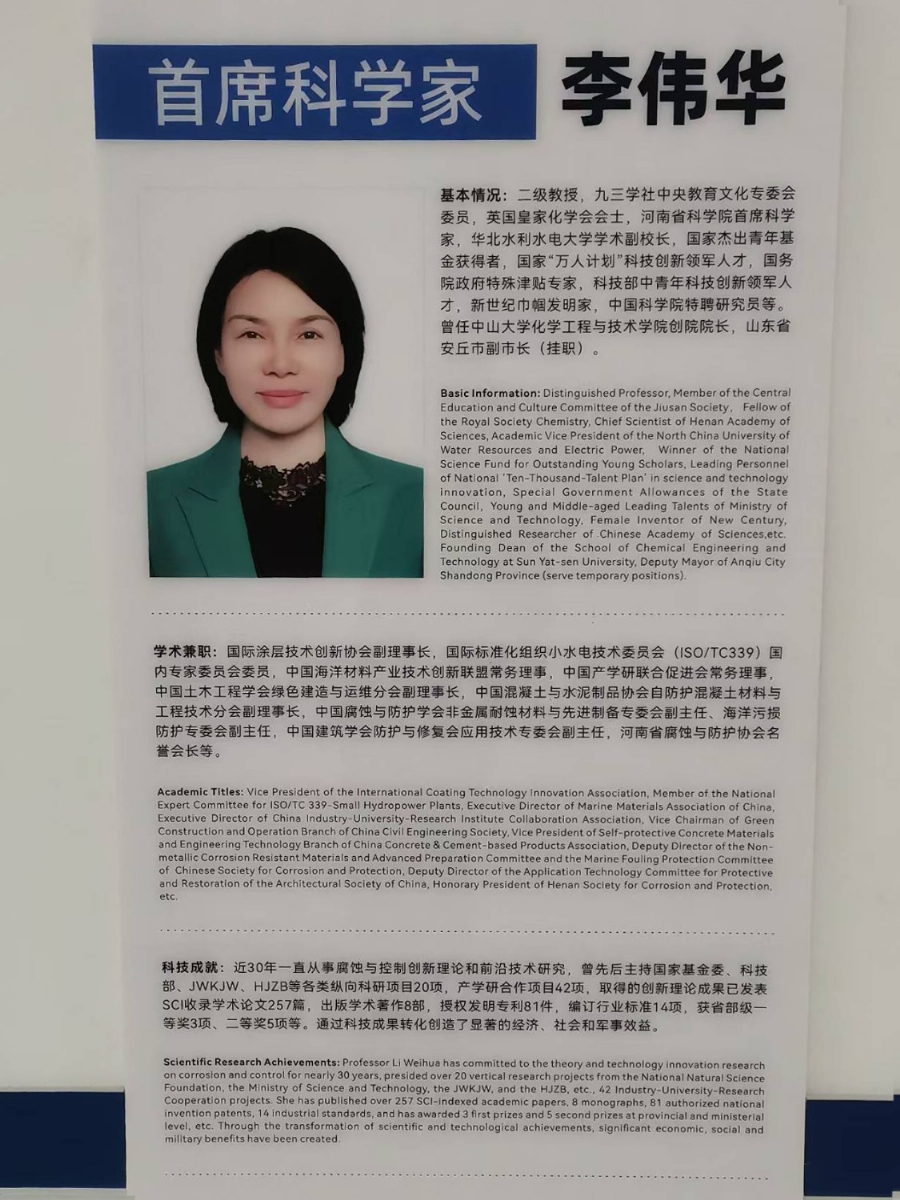 首席科学家 李伟华
基本情况：二级教授，九三学社中央教育文化专委会
委员，英国皇家化学会会士，河南省科学院首席科学
家，华北水利水电大学学术副校长，国家杰出青年基
金获得者，国家“万人计划”科技创新领军人才，国务
院政府特殊津贴专家，科技部中青年科技创新领军人
才，新世纪巾帼发明家，中国科学院特聘研究员等。
曾任中山大学化学工程与技术学院创院院长，山东省
安丘市副市长（挂职）。
Basic Information: Distinguished Professor, Member of the Central
Education and Culture Committee of the Jiusan Society, Fellow of
the Royal Society Chemistry, Chief Scientist of Henan Academy of
Sciences, Academic Vice President of the North China University of
Water Resources and Electric Power, Winner of the National
Science Fund for Outstanding Young Scholars, Leading Personnel
of National 'Ten-Thousand-Talent Plan' in science and technology
innovation, Special Government Allowances of the State
Council, Young and Middle-aged Leading Talents of Ministry of
Science and Technology, Female Inventor of New Century,
Distinguished Researcher of Chinese Academy of Sciences,etc.
Founding Dean of the School of Chemical Engineering and
Technology at Sun Yat-sen University, Deputy Mayor of Anqiu City
Shandong Province (serve temporary positions).
学术兼职：国际涂层技术创新协会副理事长，国际标准化组织小水电技术委员会（ISO/TC339）国
内专家委员会委员，中国海洋材料产业技术创新联盟常务理事，中国产学研联合促进会常务理事，
中国土木工程学会绿色建造与运维分会副理事长，中国混凝土与水泥制品协会自防护混凝土材料与
工程技术分会副理事长，中国腐蚀与防护学会非金属耐蚀材料与先进制备专委会副主任、海洋污损
防护专委会副主任，中国建筑学会防护与修复会应用技术专委会副主任，河南省腐蚀与防护协会名
誉会长等。
Academic Titles: Vice President of the International Coating Technology Innovation Association, Member of the National
Expert Committee for ISO/TC 339-Small Hydropower Plants, Executive Director of Marine Materials Association of China,
Executive Director of China Industry-University-Research Institute Collaboration Association, Vice Chairman of Green
Construction and Operation Branch of China Civil Engineering Society, Vice President of Self-protective Concrete Materials
and Engineering Technology Branch of China Concrete & Cement-based Products Association, Deputy Director of the Non-
metallic Corrosion Resistant Materials and Advanced Preparation Committee and the Marine Fouling Protection Committee
of Chinese Society for Corrosion and Protection, Deputy Director of the Application Technology Committee for Protective
and Restoration of the Architectural Society of China, Honorary President of Henan Society for Corrosion and Protection,
etc.
科技成就：近30年一直从事腐蚀与控制创新理论和前沿技术研究，曾先后主持国家基金委、科技
部、JWKJW、HJZB等各类纵向科研项目20项，产学研合作项目42项，取得的创新理论成果已发表
SCI收录学术论文257篇，出版学术著作8部，授权发明专利81件，编订行业标准14项，获省部级一
等奖3项、二等奖5项等。通过科技成果转化创造了显著的经济、社会和军事效益。
Scientific Research Achievements: Professor Li Weihua has committed to the theory and technology innovation research
on corrosion and control for nearly 30 years, presided over 20 vertical research projects from the National Natural Science
Foundation, the Ministry of Science and Technology, the JWKJW, and the HJZB, etc., 42 Industry-University-Research
Cooperation projects. She has published over 257 SCI-indexed academic papers, 8 monographs, 81 authorized national
invention patents, 14 industrial standards, and has awarded 3 first prizes and 5 second prizes at provincial and ministerial
level, etc. Through the transformation of scientific and technological achievements, significant economic, social and
military benefits have been created.